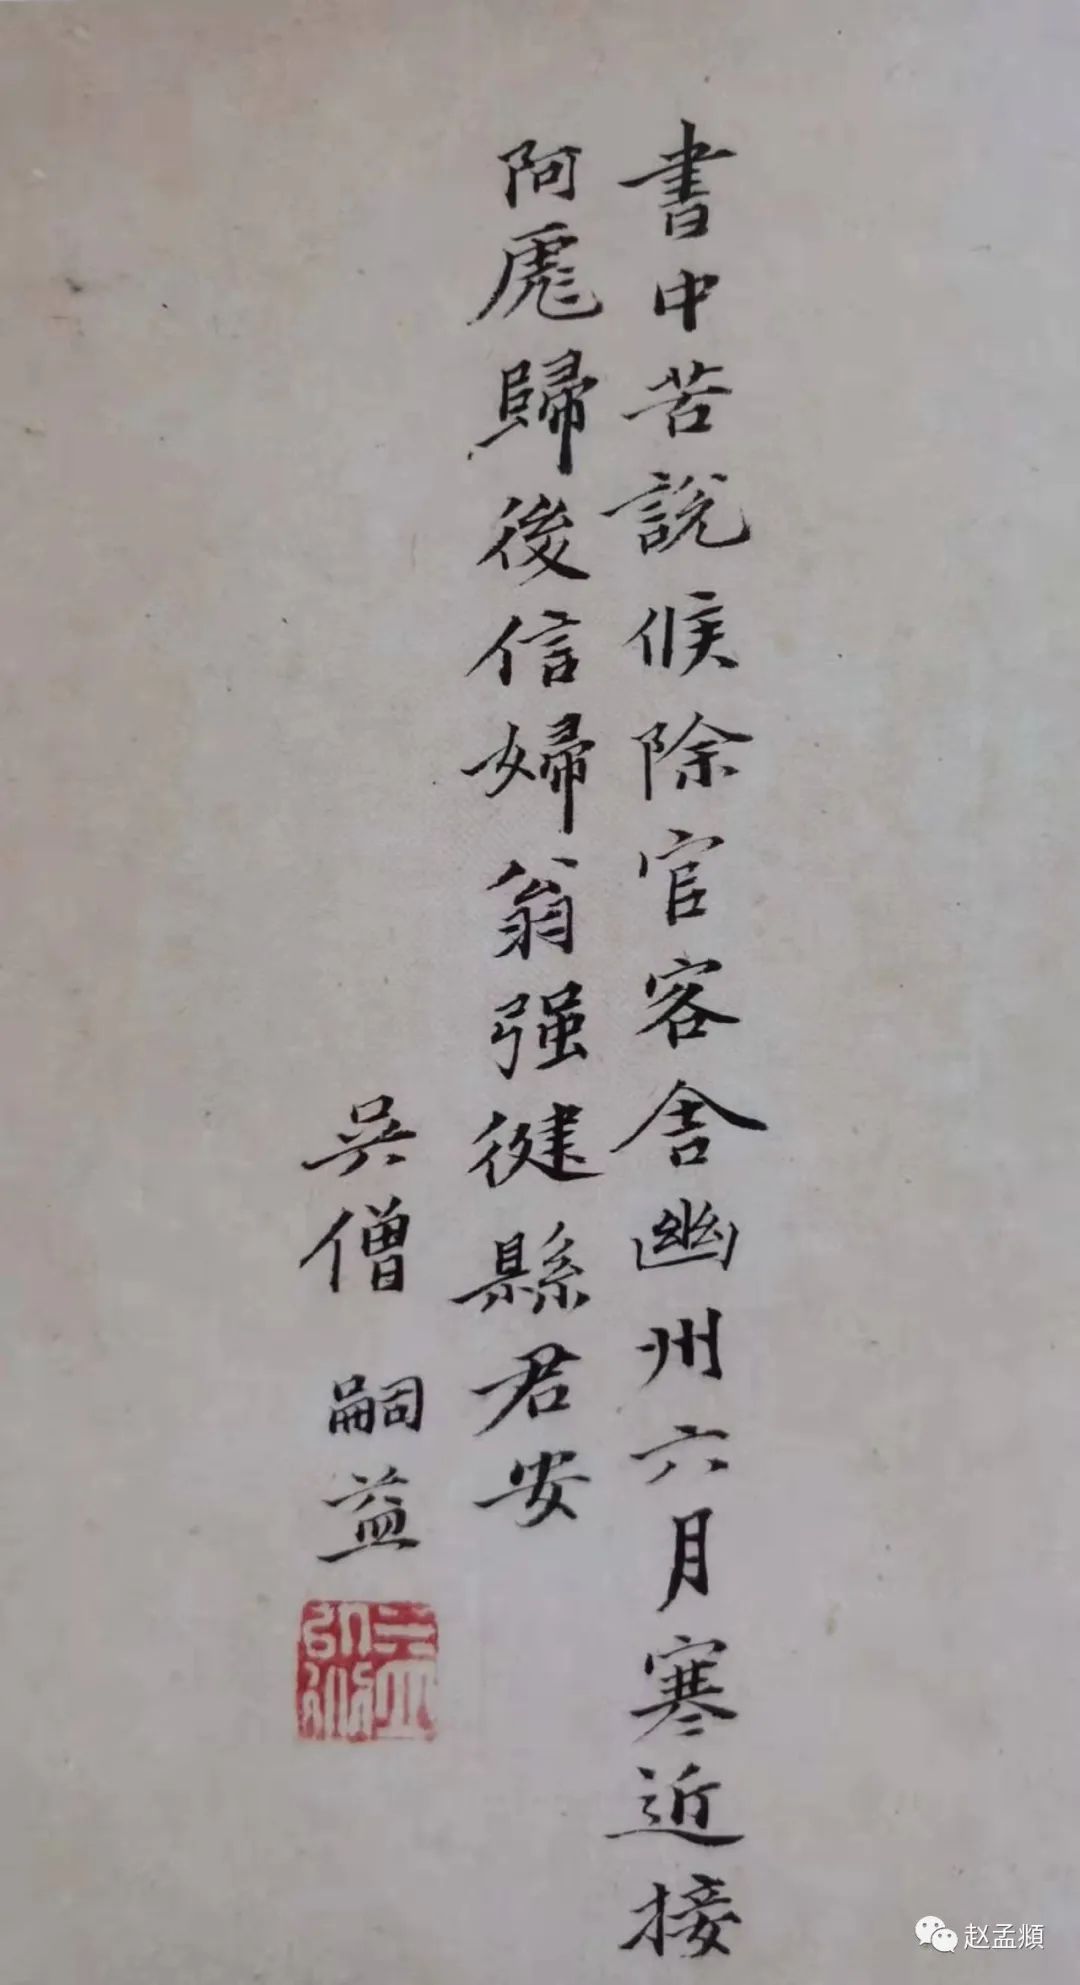 書中苦說候除官客舍幽州六月寒近接
阿彪歸後信婦翁强健縣君安
吴僧 嗣益
赵孟頫